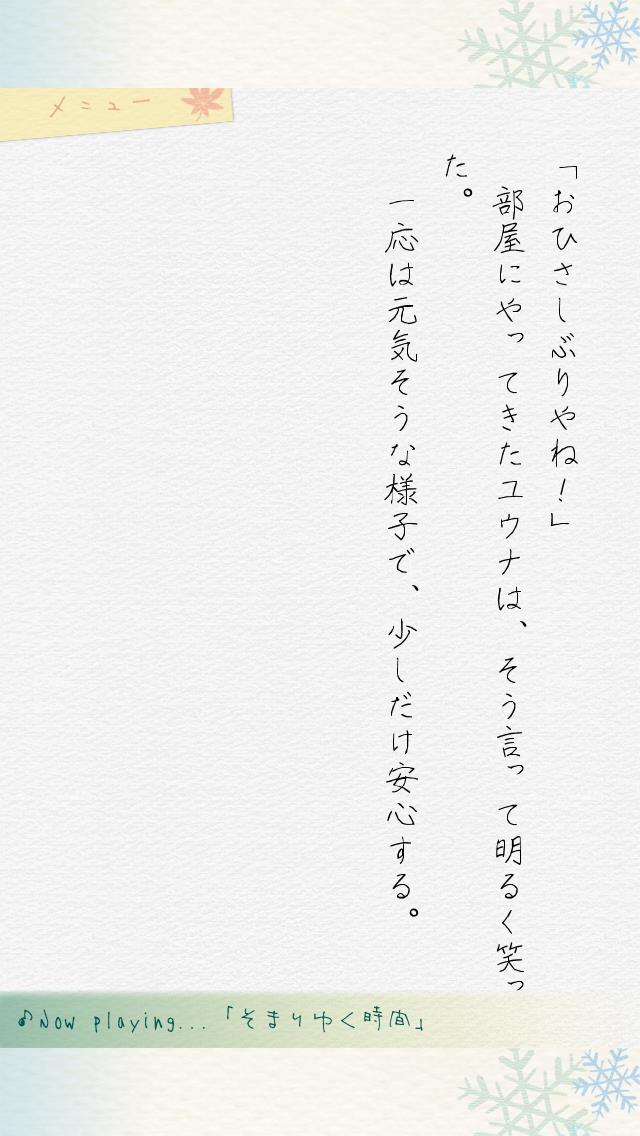 メニュー
「おひさしぶりやね！」
部屋にやってきたユウナは、そう言って明るく笑っ
た。
一応は元気そうな様子で、少しだけ安心する。
♪Now playing...「そまりゆく時間」